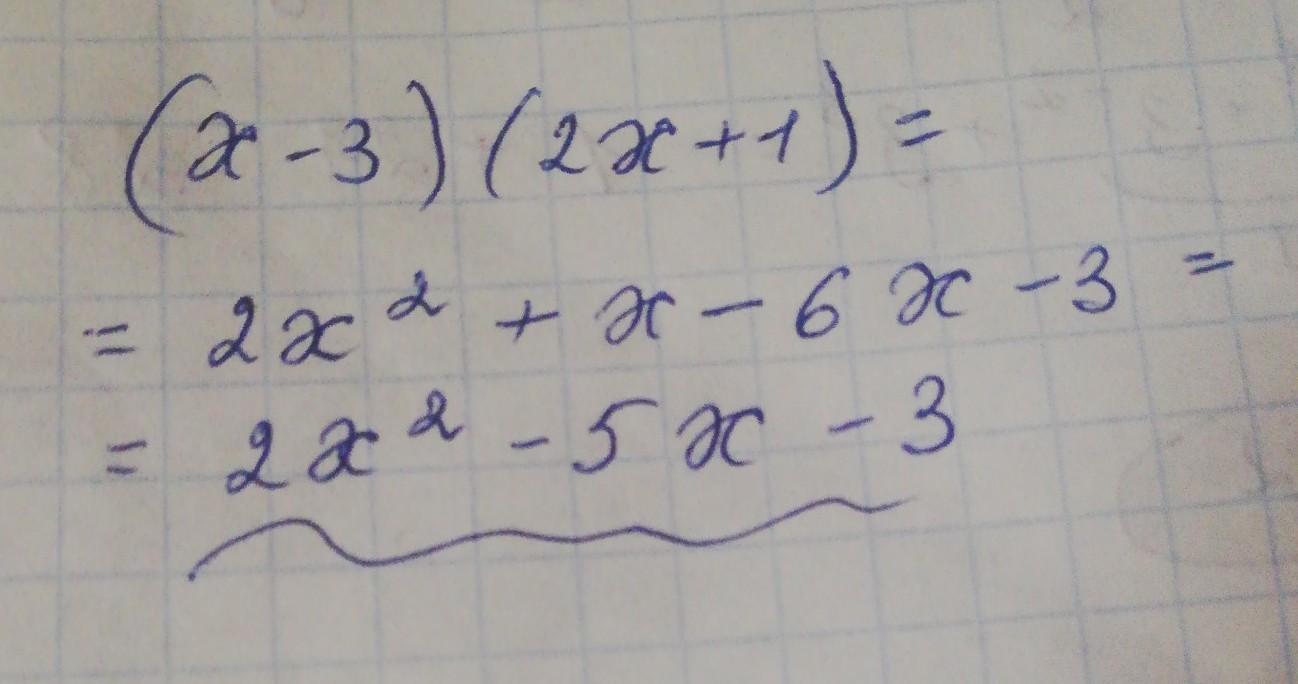 (x-3)(2x+1)=
= 2x² + x - 6x - 3 =
= 2x² - 5x - 3